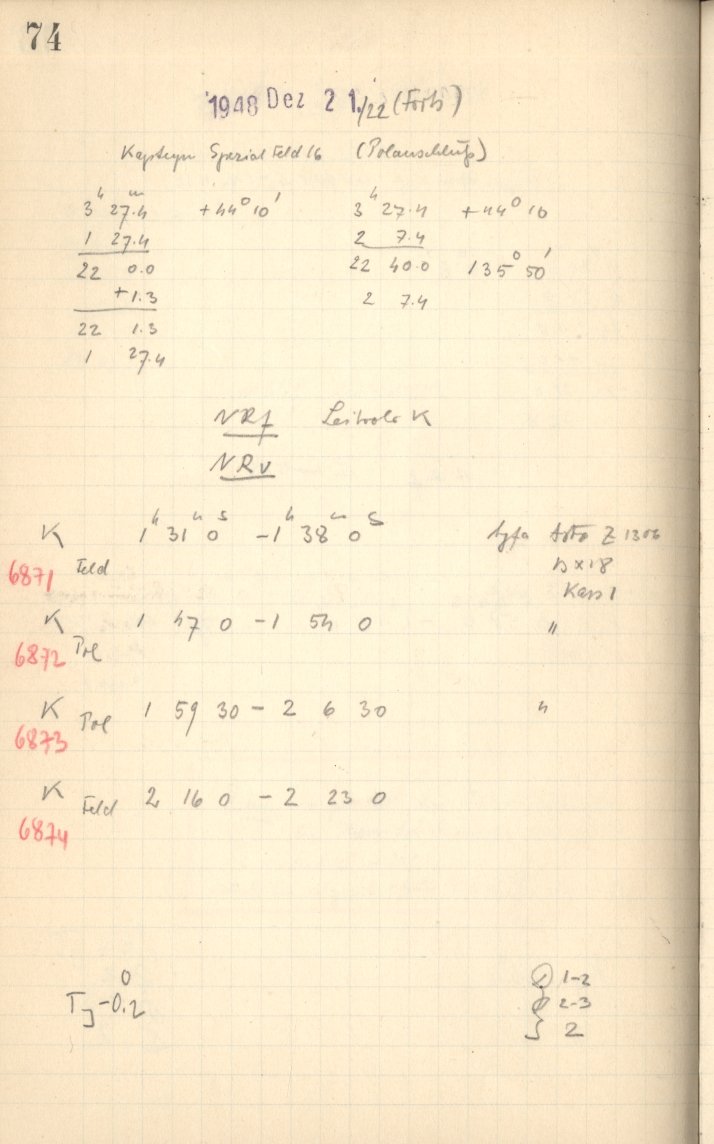 74
1948 Dez 21./22 (Forts)
Kapteyn Spezial Feld 16 (Polanschluß)
3h 27.4m +44° 10' 3h 27.4 +44° 10
1 27.4 2 7.4
22 0.0 22 40.0 135° 50'
+1.3 2 7.4
22 1.3
1 27.4
NRf Leitrohr K
NRv
K 1h 31m 0s - 1h 38m 0s Agfa Astro Z 1306
6871 Feld
Kass 1
K 1 47 0 - 1 54 0 "
6872 Pol
K Pol 1 59 30 - 2 6 30 "
6873
K Feld 2 16 0 - 2 23 0
6874
0
TJ -0.2
1-2
2-3
2